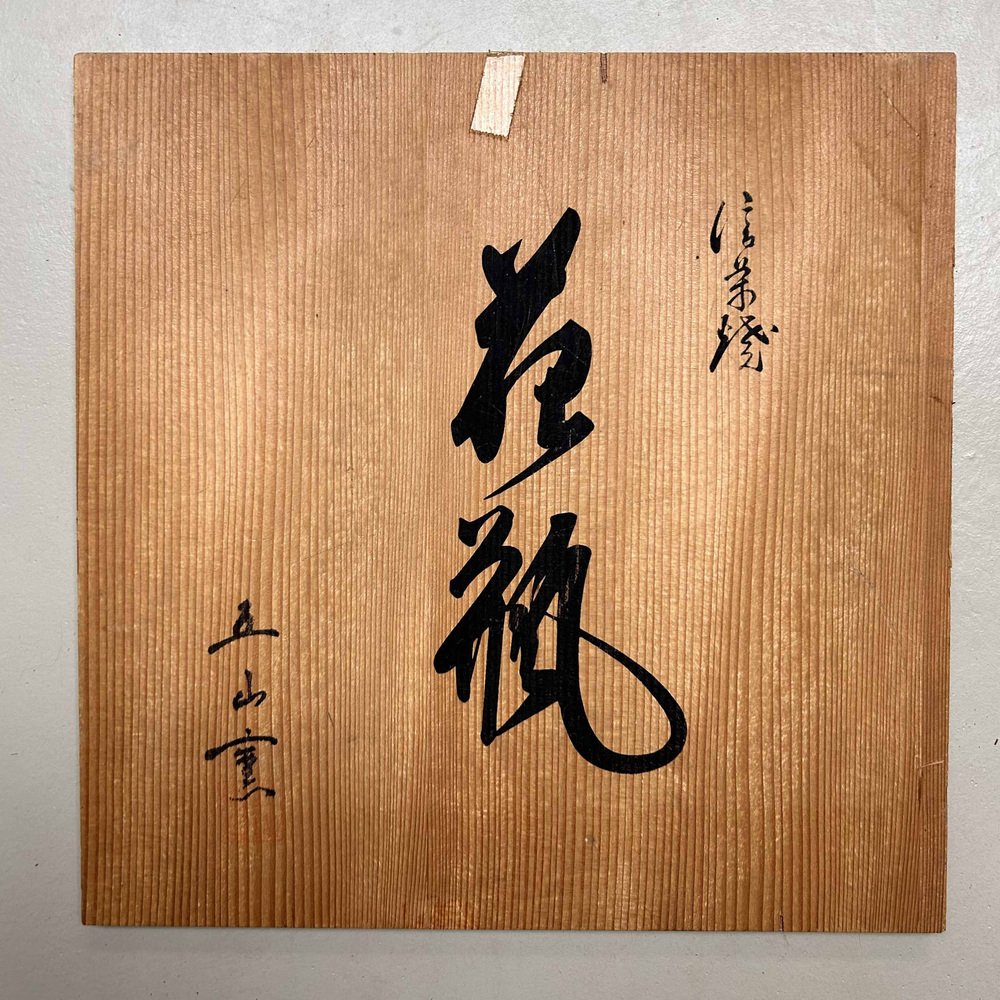 信楽焼
花瓶
五山窯